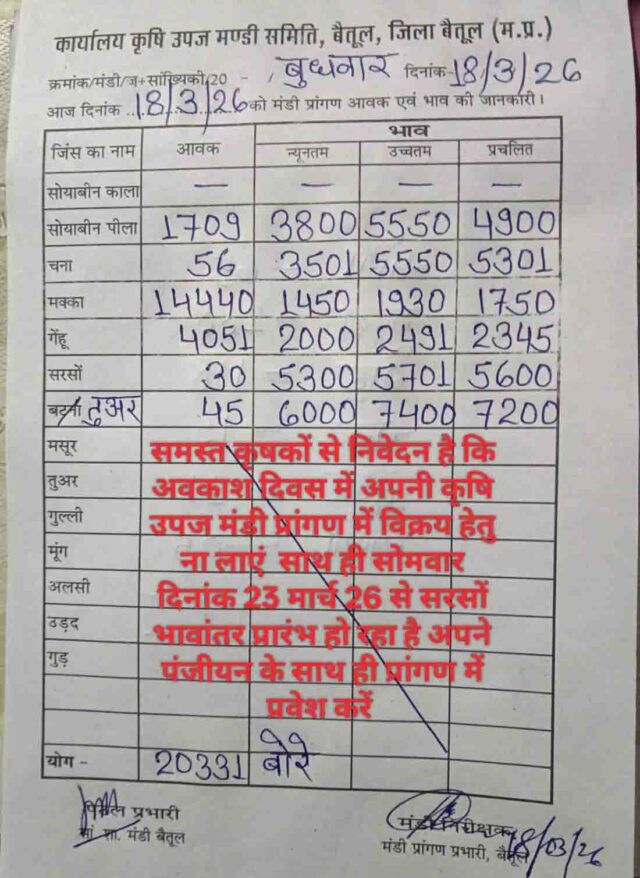 कार्यालय कृषि उपज मण्डी समिति, बैतूल, जिला बैतूल (म.प्र.)
क्रमांक/मंडी/ज+सांख्यिकी/20 - , बुधवार दिनांक-18/3/26
आज दिनांक ..18/3/26 को मंडी प्रांगण आवक एवं भाव की जानकारी।
जिंस का नाम आवक भाव
न्यूनतम उच्चतम प्रचलित
सोयाबीन काला — — — —
सोयाबीन पीला 1709 3800 5550 4900
चना 56 3501 5550 5301
मक्का 14440 1450 1930 1750
गेंहू 4051 2000 2491 2345
सरसों 30 5300 5701 5600
तुअर 45 6000 7400 7200
मसूर
तुअर
गुल्ली
मूंग
अलसी
उड़द
गुड़
समस्त कृषकों से निवेदन है कि
अवकाश दिवस में अपनी कृषि
उपज मंडी प्रांगण में विक्रय हेतु
ना लाएं साथ ही सोमवार
दिनांक 23 मार्च 26 से सरसों
भावांतर प्रारंभ हो रहा है अपने
पंजीयन के साथ ही प्रांगण में
प्रवेश करें
योग - 20331 बोरे
प्रभारी
मंडी बैतूल
मंडी निरीक्षक
मंडी प्रांगण प्रभारी, बैतूल 18/03/26